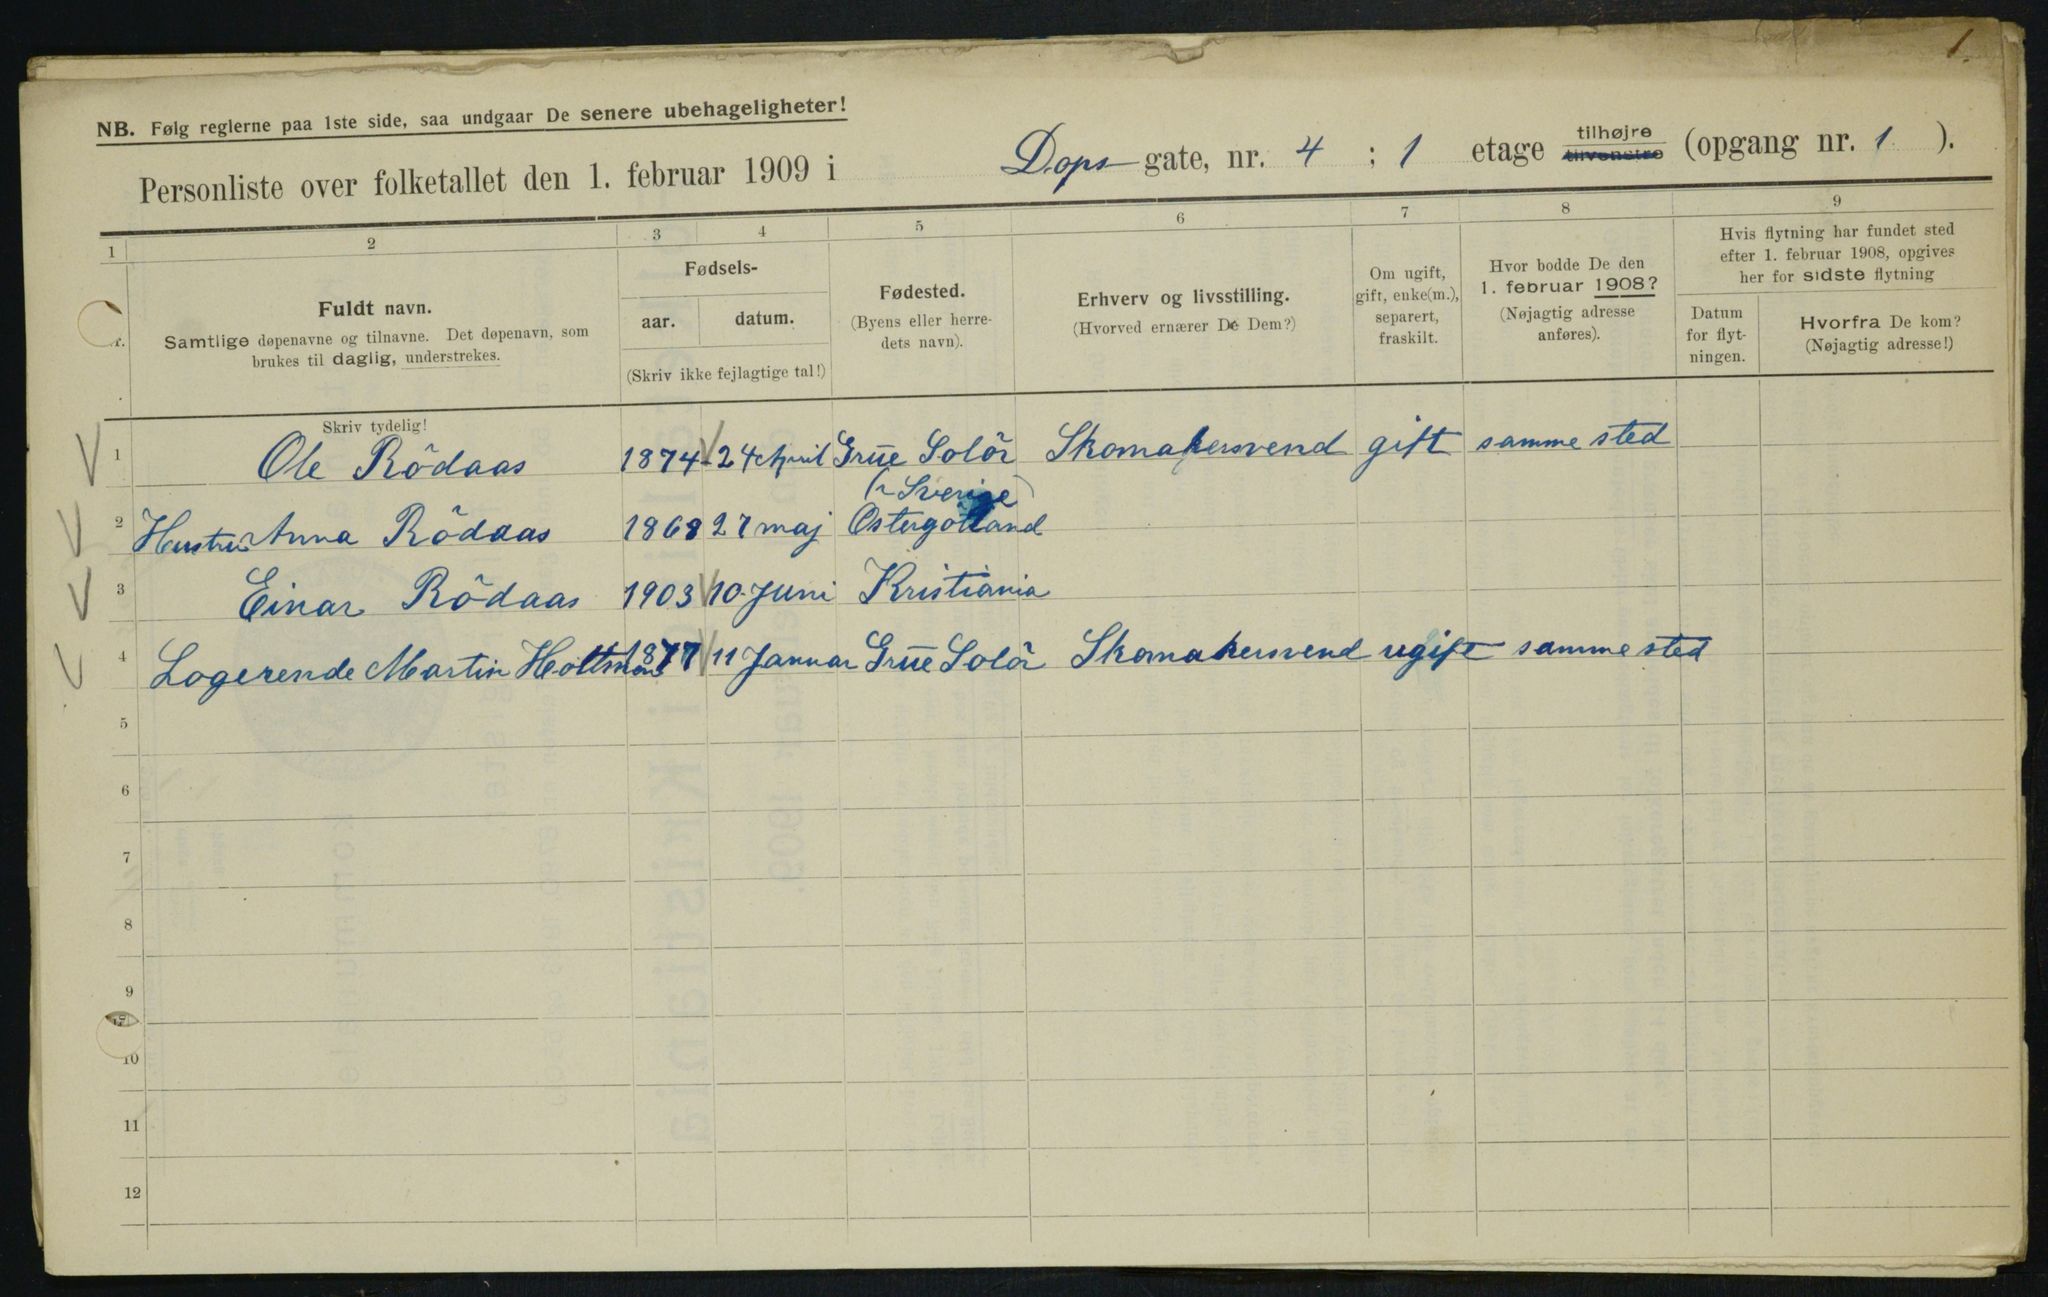 1.
NB. Følg reglerne paa 1ste side, saa undgaar De senere ubehageligheter!
Personliste over folketallet den 1. februar 1909 i Dops gate, nr. 4 ; 1 etage tilhøjre tilvenstre (opgang nr. 1 ).
1 2 3 4 5 6 7 8 9
Fuldt navn.
Samtlige døpenavne og tilnavne. Det døpenavn, som
brukes til daglig, understrekes.
Fødsels-
aar. datum.
(Skriv ikke fejlagtige tal!)
Fødested.
(Byens eller herre-
dets navn).
Erhverv og livsstilling.
(Hvorved ernærer De Dem?)
Om ugift,
gift, enke(m.),
separert,
fraskilt.
Hvor bodde De den
1. februar 1908?
(Nøjagtig adresse
anføres).
Hvis flytning har fundet sted
efter 1. februar 1908, opgives
her for sidste flytning
Datum
for flyt-
ningen.
Hvorfra De kom?
(Nøjagtig adresse!)
Skriv tydelig!
1 Ole Rödaas 1874 24 April Grue Solör Skomakersvend gift samme sted
(Sverige)
2 Hustru Anna Rödaas 1868 27 maj Ostergotland
3 Einar Rödaas 1903 10 Juni Kristiania
4 Logerende Martin 1877 11 Januar Grue Solör Skomakersvend ugift samme sted
5
6
7
8
9
10
11
12